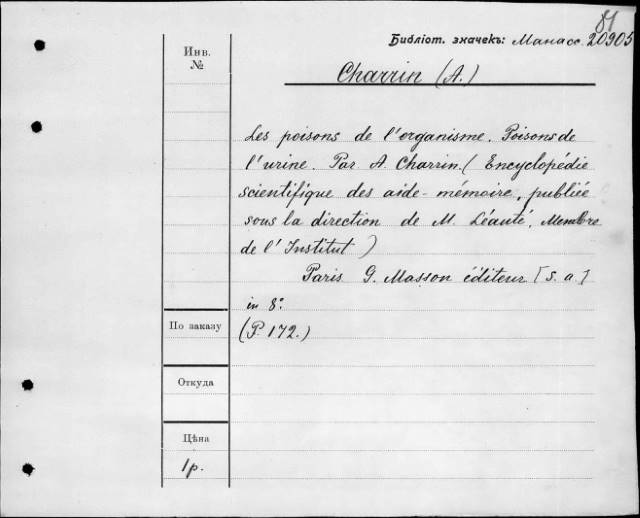 81
Библіот. значекъ: Манасс. 20905
Инв.
№
Charrin (A.)
Les poisons de l'organisme. Poisons de
l'urine. Par A. Charrin. (Encyclopédie
scientifique des aide-mémoire, publiée
sous la direction de M. Léauté, Membre
de l'Institut)
Paris G. Masson éditeur [s. a.]
in 8º
По заказу
(P. 172.)
Откуда
Цѣна
1 р.